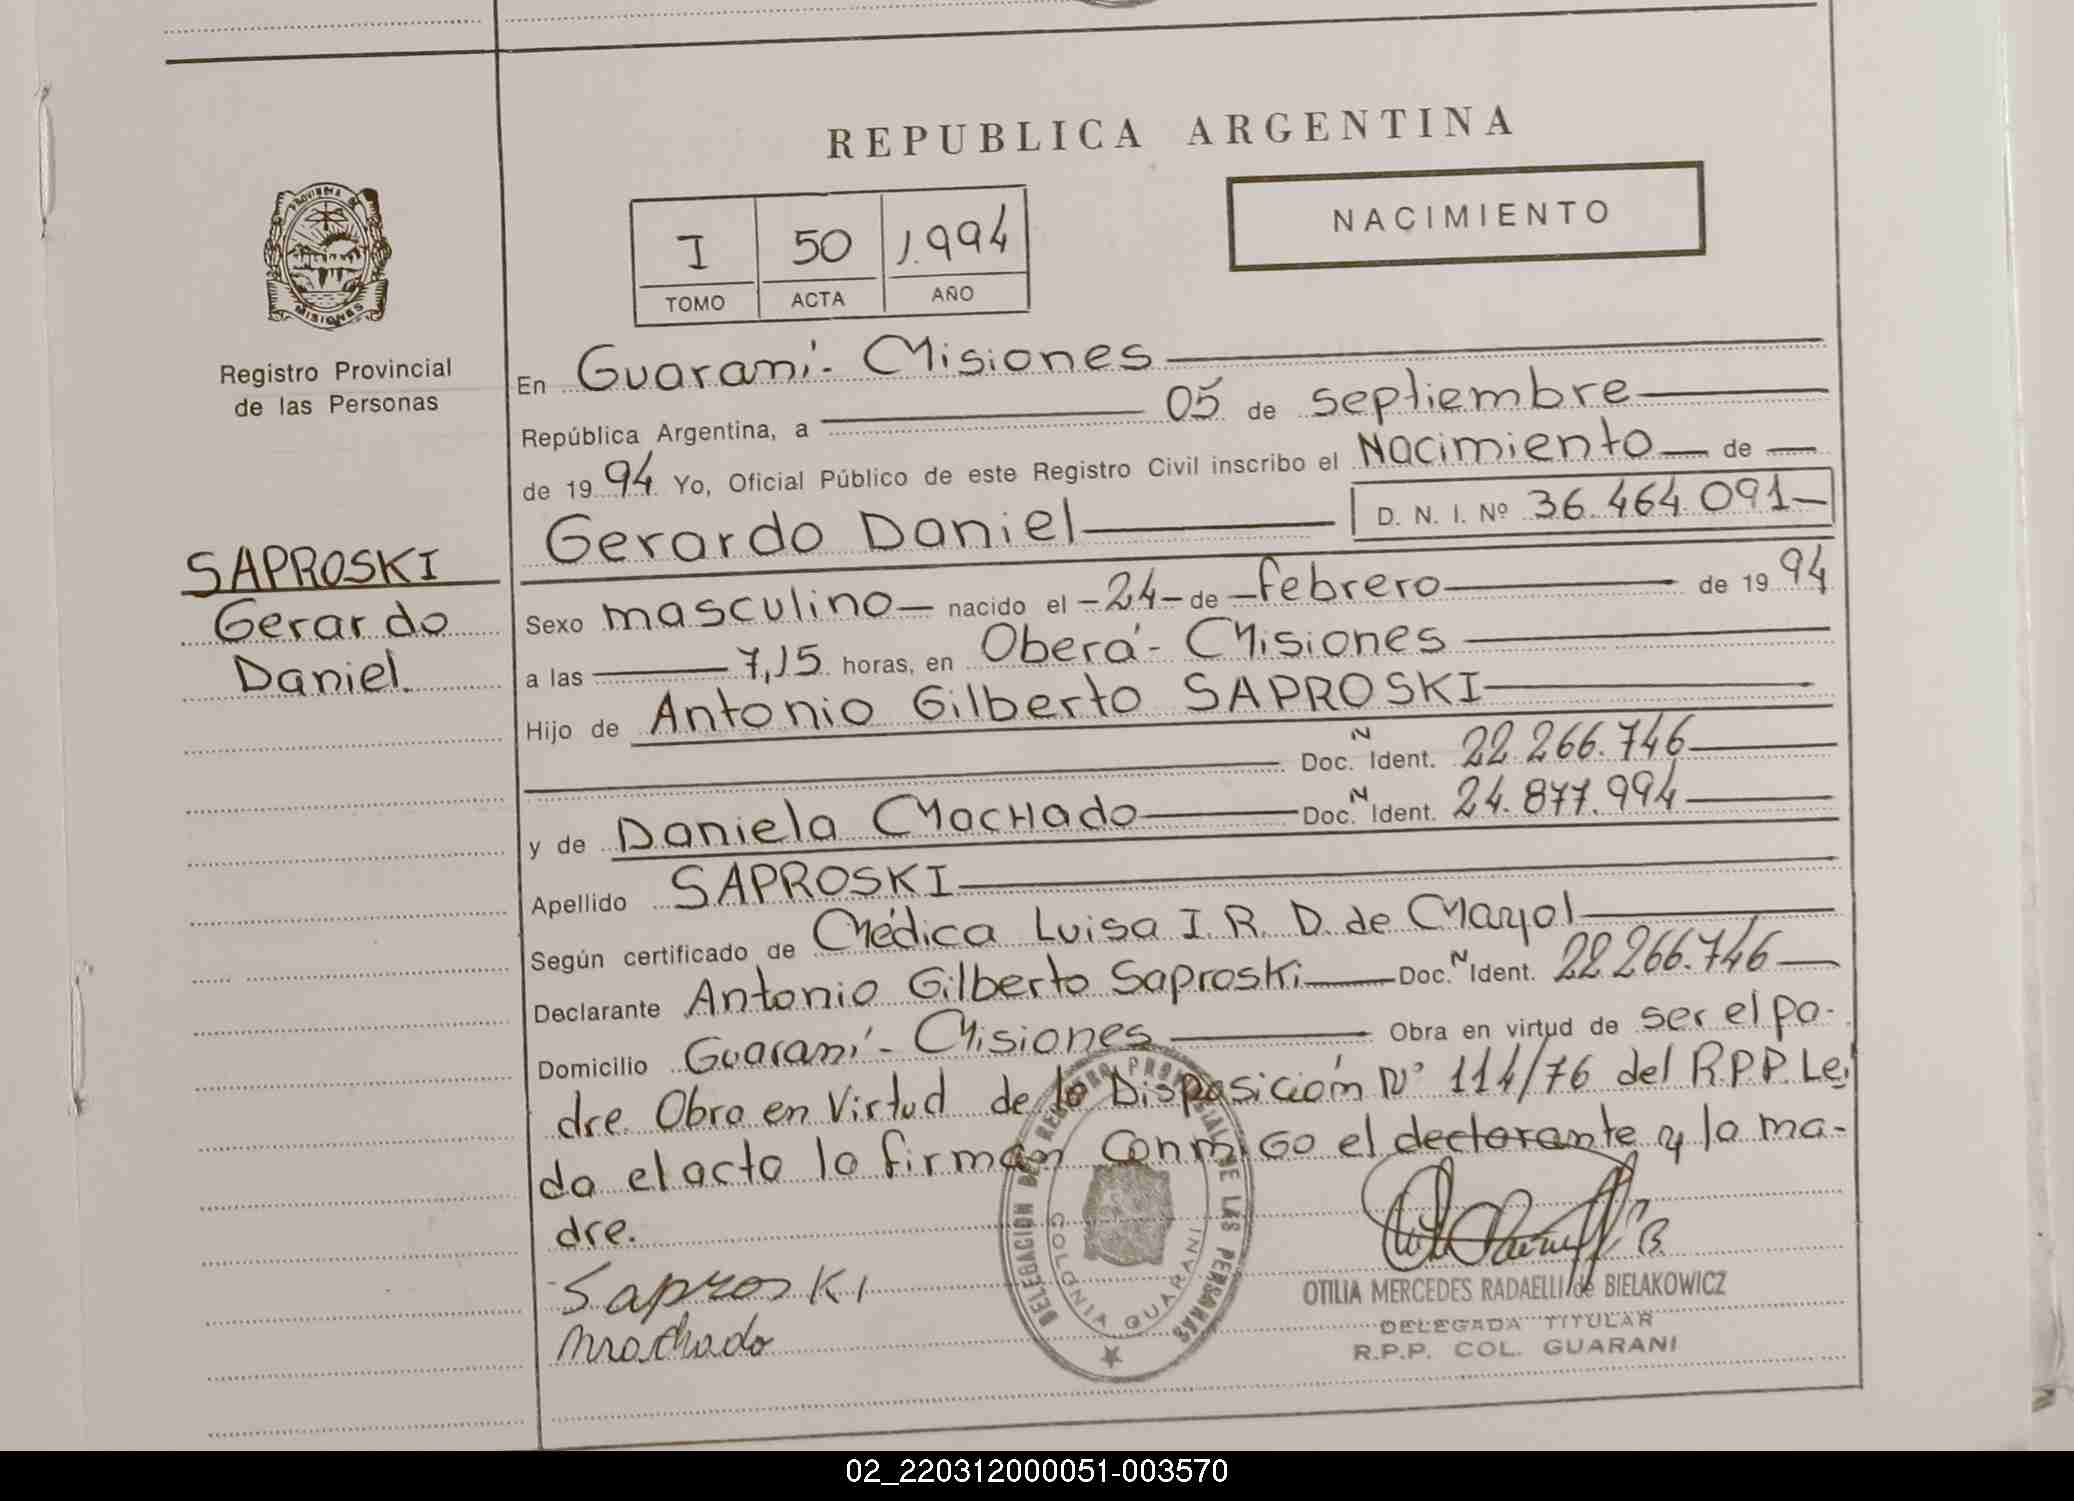 REPUBLICA ARGENTINA
PROVINCIA DE
MISIONES
Registro Provincial
de las Personas
SAPROSKI
Gerardo
Daniel.
I 50 1.994
TOMO ACTA AÑO
NACIMIENTO
En Guaraní- Misiones
República Argentina, a 05 de septiembre
de 1994 Yo, Oficial Público de este Registro Civil inscribo el Nacimiento de
Gerardo Daniel D. N. I. Nº 36.464.091-
Sexo masculino nacido el -24- de febrero de 1994
a las 7,15 horas, en Oberá- Misiones
Hijo de Antonio Gilberto SAPROSKI
Doc. N Ident. 22.266.746
y de Daniela Machado Doc. N Ident. 24.877.994
Apellido SAPROSKI
Según certificado de Médica Luisa I. R. D. de Mayol
Declarante Antonio Gilberto Saproski Doc. N Ident. 22.266.746
Domicilio Guaraní- Misiones Obra en virtud de ser el pa-
dre. Obra en Virtud de la Disposición Nº 114/76 del R.P.P. Leí
da el acta la firman conmigo el declarante y la ma-
dre.
Saproski
Machado
DELEGACION DEL REGISTRO PROVINCIAL DE LAS PERSONAS
COLONIA GUARANI
OTILIA MERCEDES RADAELLI de BIELAKOWICZ
DELEGADA TITULAR
R.P.P. COL. GUARANI
02_220312000051-003570